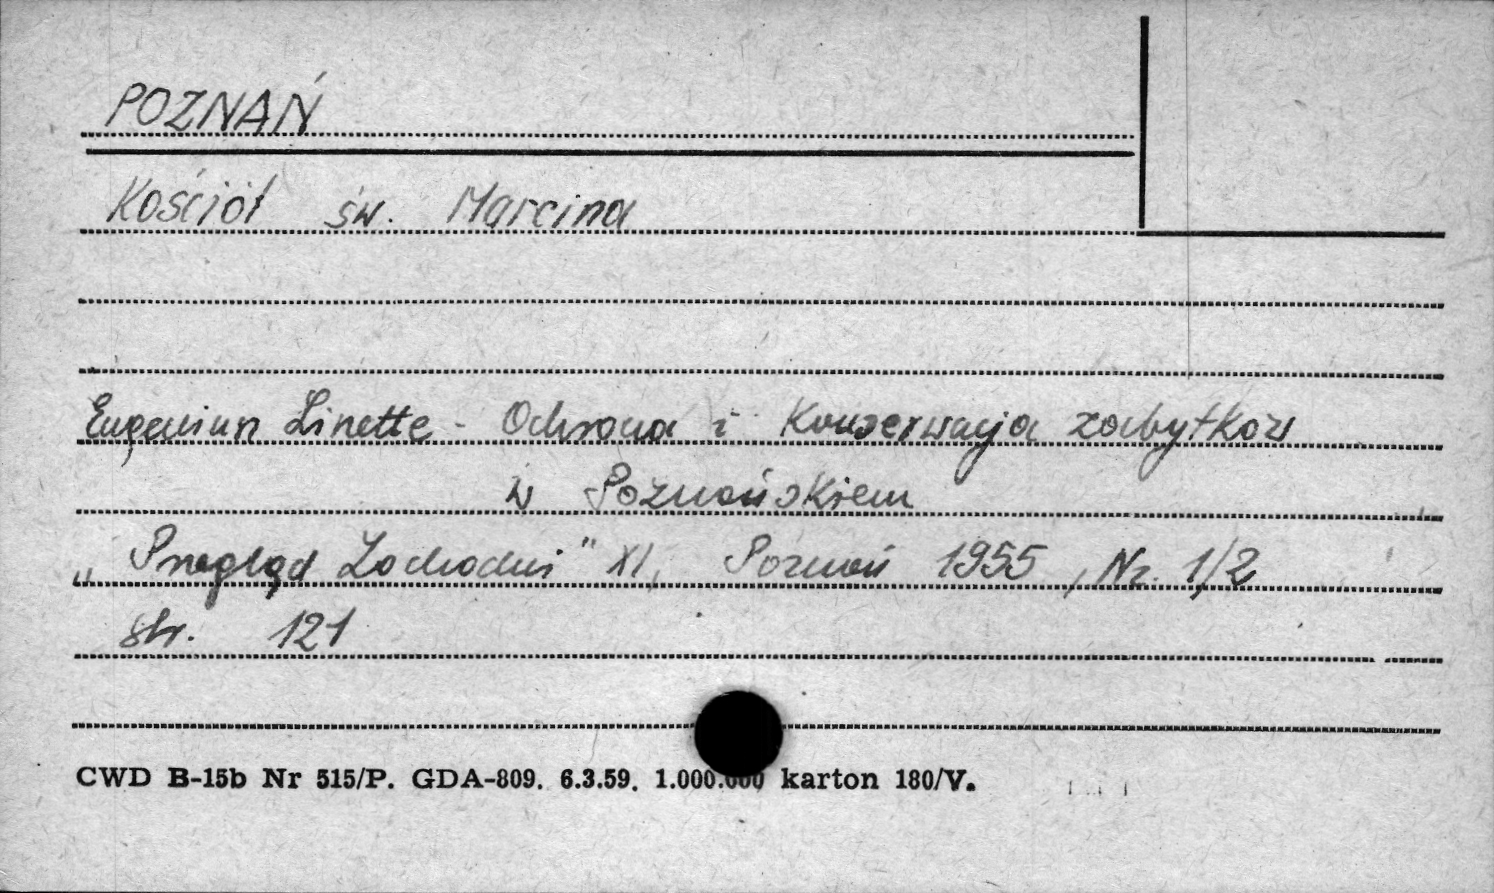 POZNAŃ
Kościół św. Marcina
Eugeniusz Linette - Ochrona i Konserwacja zabytków
w Poznańskiem
„Przegląd Zachodni" XI, Poznań 1955, Nr. 1/2
str. 121
CWD B-15b Nr 515/P. GDA-809. 6.3.59. 1.000.000 karton 180/V.